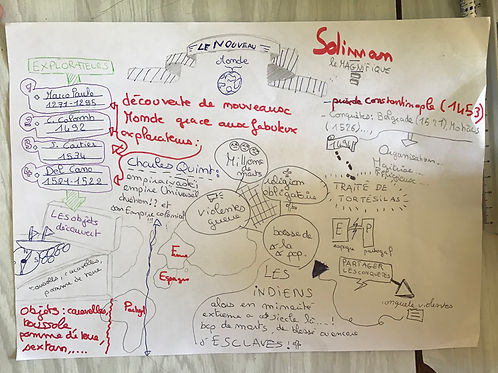 LE NOUVEAU
Monde
EXPLORATEURS
1
Marco Paulo
1271-1295
2
C. Colomb
1492
3
J. Cartier
1534
4
Del Cano
1521-1522
découverte de nouveaux
Monde grace aux fabuleux
explorateurs:
Charles Quint:
empire vaste;
empire Universel
chrétien!? et
son Empire colonial
Millions
morts
religion
obligatoire
violentes
guerre
baisse de
la
pop.
Soliman
le MAGNIFIQUE
prise de constantinople (1453)
Conquêtes: Belgrade (1521), Mohács
(1526)...
1494
Organisation:
TRAITÉ DE
TORTESILAS
E
P
espagne
portugal
PARTAGER
LES CONQUÊTES
conquete violentes
LES
INDIENS
alors en minorité
extreme a ce siecle là...!
bcp de morts, de blessé ou encore
d'ESCLAVES!
LES objets
découvert
caravelles,
pomme de terre
objets: caravelles,
boussole
pomme de terre,
sextan,....
Portugal
Espagne